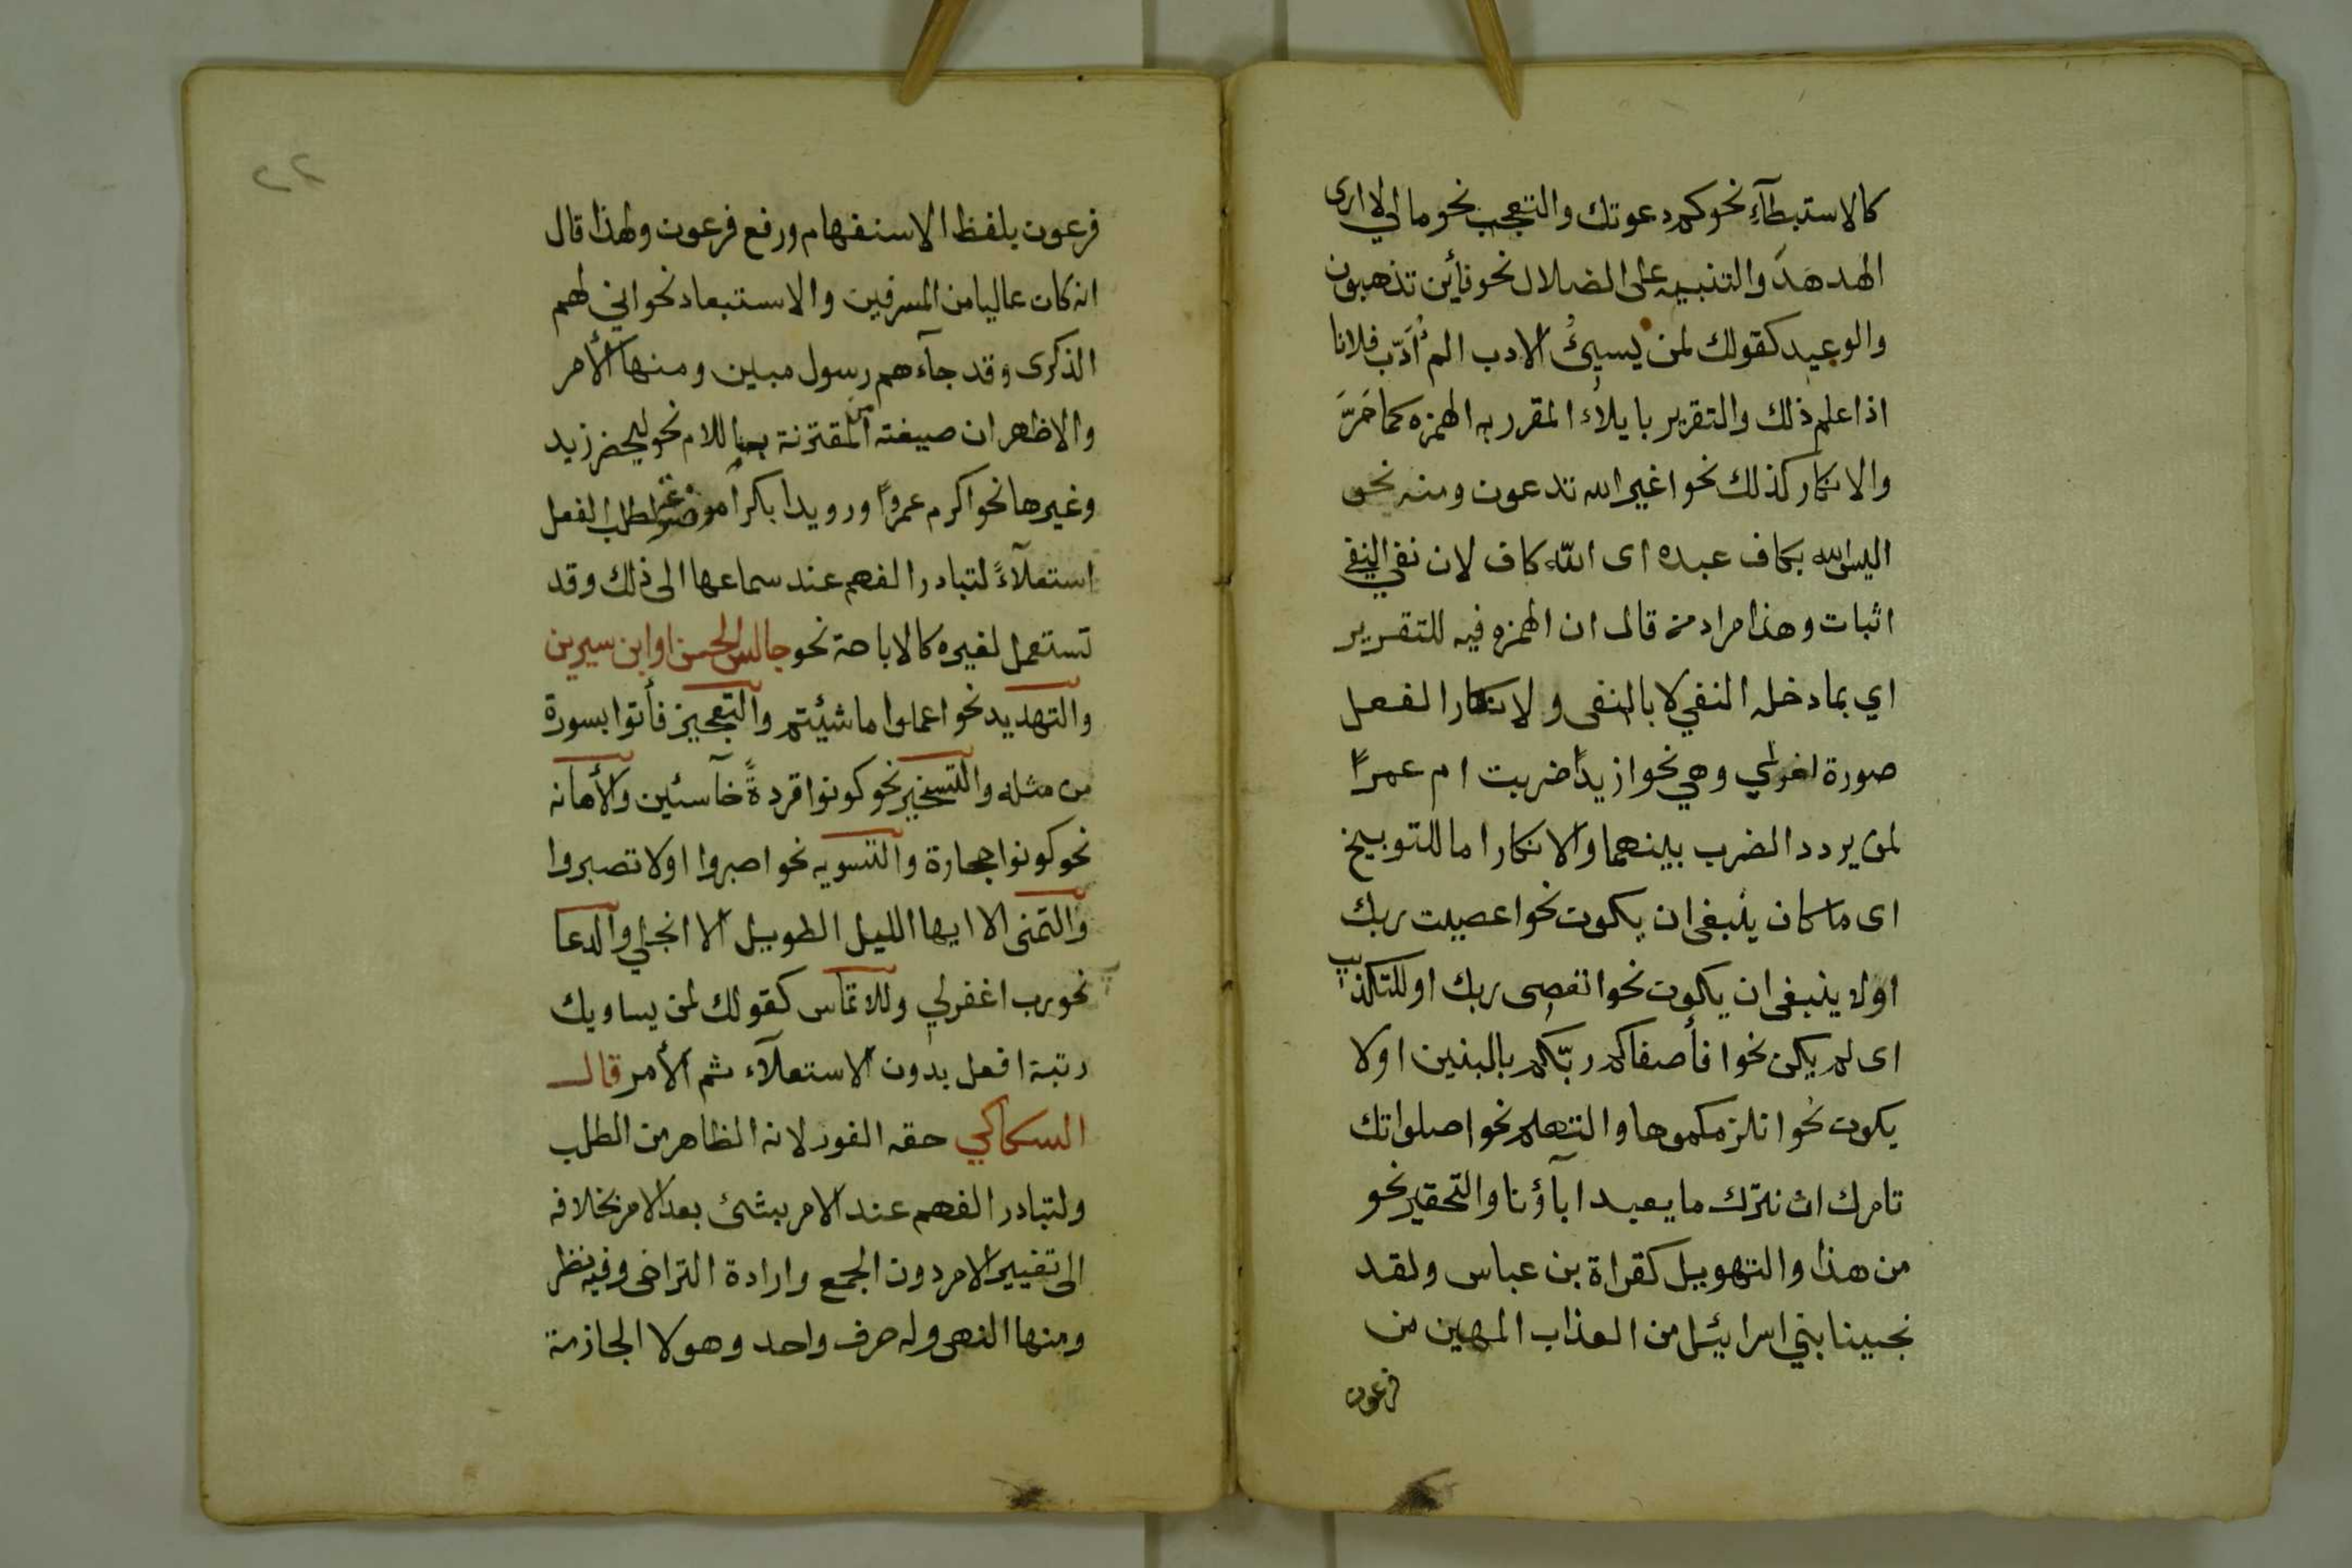 كالاستبطآء نحو كم دعوتك والتعجب نحو مالي لا ارى
الهدهدَ والتنبيه على الضلال نحو فأين تذهبون
والوعيد كقولك لمن يسيئُ الادب الم أُأَدّب فلانا
اذا علم ذلك والتقرير بايلاء المقرر به الهمزه كما مَرَّ
والانكار كذلك نحو اغير الله تدعون ومنه نحو
اليس الله بكاف عبده اى اللّه كاف لان نفي النفي
اثبات وهذا مراد من قال ان الهمزه فيه للتقرير
اي بما دخله النفي لا بالنفى ولانكار الفعل
صورة اخرى وهي نحو ازيداً ضربت ام عمراً
لمن يردد الضرب بينهما والانكار اما للتوبيخ
اى ما كان ينبغى ان يكون نحو اعصيت ربك
اولا ينبغى ان يكون نحو اتعصى ربك او للتكذيب
اى لم يكن نحو افأصفاكم ربّكم بالبنين اولا
يكون نحو انلزمكموها والتهكم نحو اصلواتك
تامرك ان نترك ما يعبد آباؤنا والتحقير نحو
من هذا والتهويل كقراة بن عباس ولقد
نجينا بني اسرائيل من العذاب المهين من
فرعون
٢٢
فرعون بلفظ الاستفهام ورفع فرعون ولهذا قال
انه كان عاليا من المسرفين والاستبعاد نحو اني لهم
الذكرى وقد جآءهم رسول مبين ومنها الأمر
والاظهر ان صيغته من المقترنة باللام نحو ليحضر زيد
وغيرها نحو اكرم عمرواً ورويدا بكراً موضوعة لطلب الفعل
استعلآءً لتبادر الفهم عند سماعها الى ذلك وقد
تستعمل لغيره كالاباحة نحو جالس الحسن او ابن سيرين
والتهديد نحو اعملوا ما شيئتم والتعجيز فأتوا بسورة
من مثله والتسخير نحو كونوا قردةً خآسئين والأهانه
نحو كونوا حجارة والتسويه نحو اصبروا اولا تصبروا
والتمنى الا ايها الليل الطويل الا انجلي والدعا
نحو رب اغفرلي وللالتماس كقولك لمن يساويك
رتبة افعل بدون الاستعلآء ثم الأمر قال
السكاكي حقه الفور لانه الظاهر من الطلب
ولتبادر الفهم عند الامر بشئ بعد الامر بخلافه
الى تغيير الامر دون الجمع وارادة التراخى وفيه نظر
ومنها النهى وله حرف واحد وهو لا الجازمة